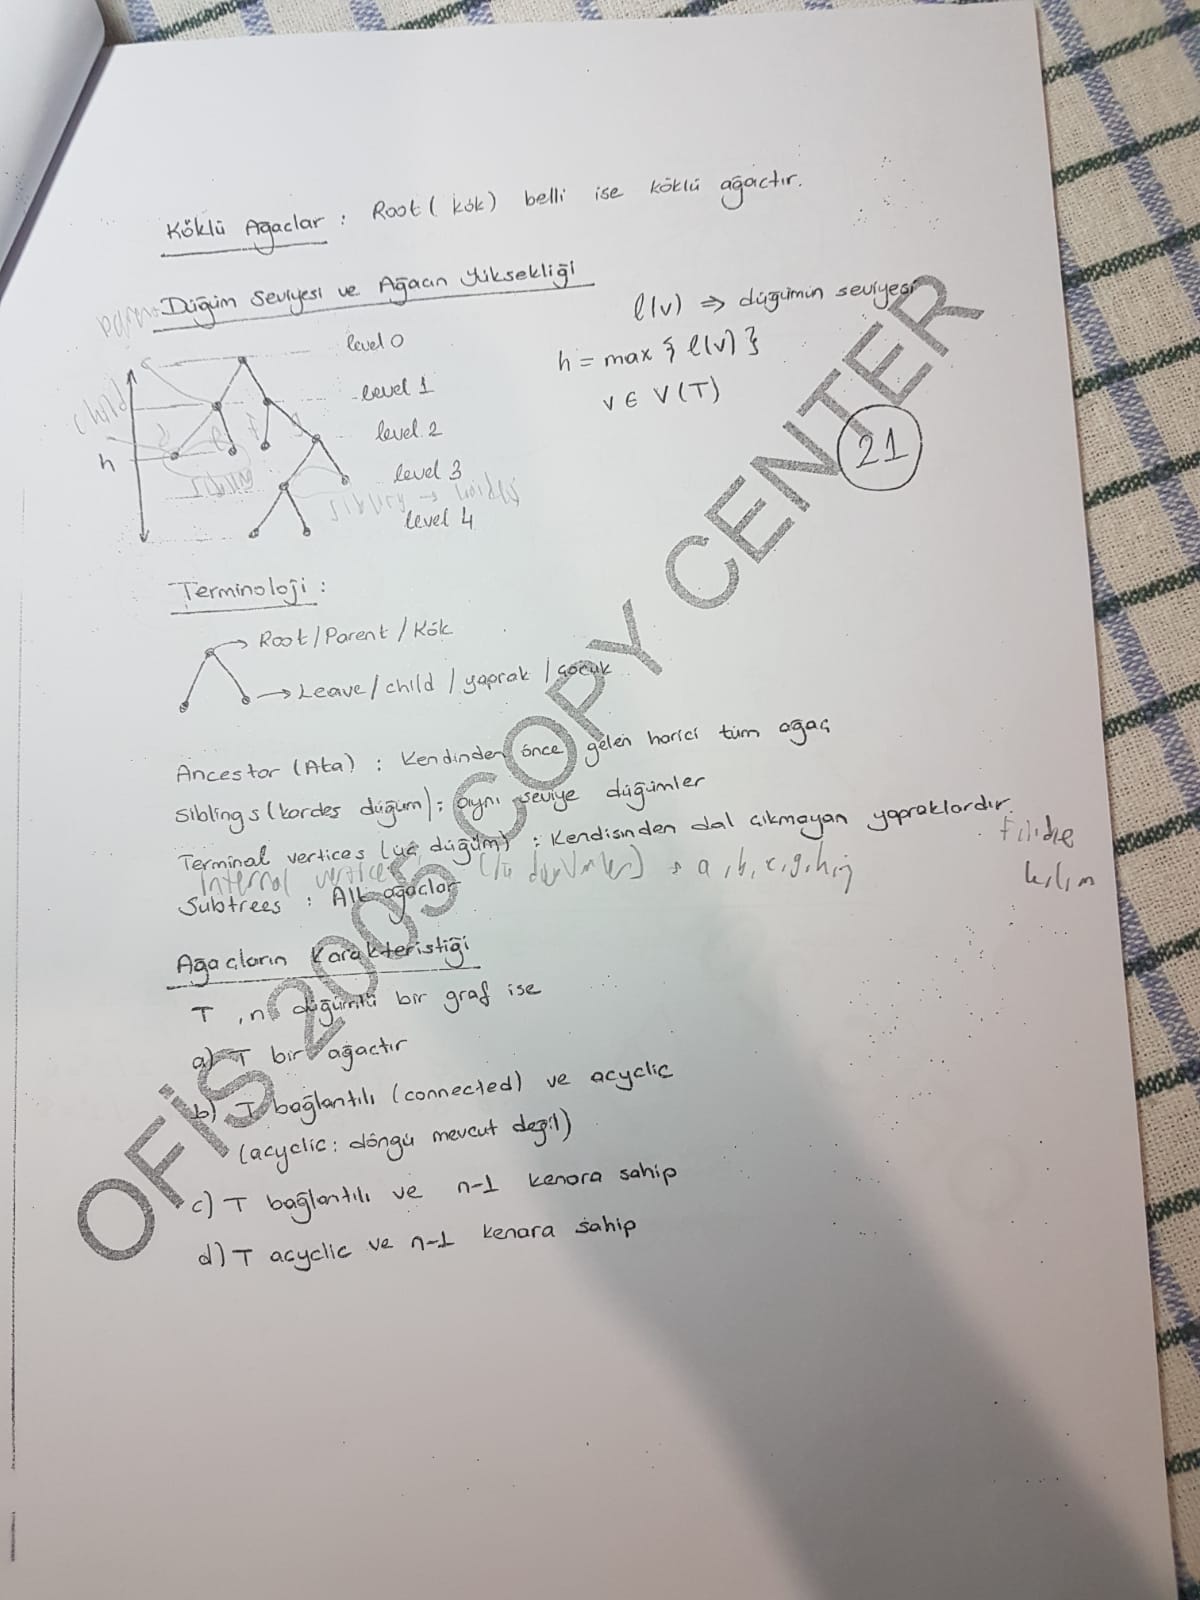 Köklü Ağaclar : Root ( kök) belli ise köklü ağactır.
Düğüm Seviyesi ve Ağacın Yüksekliği
l(v) ⇒ düğümün seviyesi
h = max { l(v) }
v ∈ V(T)
21
level 0
level 1
level 2
level 3
level 4
child
h
sibling
Terminoloji :
Root/Parent/Kök
Leave/child/yaprak/çocuk
Ancestor (Ata) : Kendinden önce gelen harici tüm ağaç
Siblings (kardeş düğüm) : aynı seviye düğümler
Terminal vertices (uç düğüm) : Kendisinden dal çıkmayan yapraklardır.
Internal vertices
Subtrees : Alt ağaclar
Ağaçların Karakteristiği
T , n düğümlü bir graf ise
a) T bir ağactır
b) T bağlantılı (connected) ve acyclic
(acyclic: döngü mevcut değil)
c) T bağlantılı ve n-1 kenara sahip
d) T acyclic ve n-1 kenara sahip
OFİS 2005 COPY CENTER